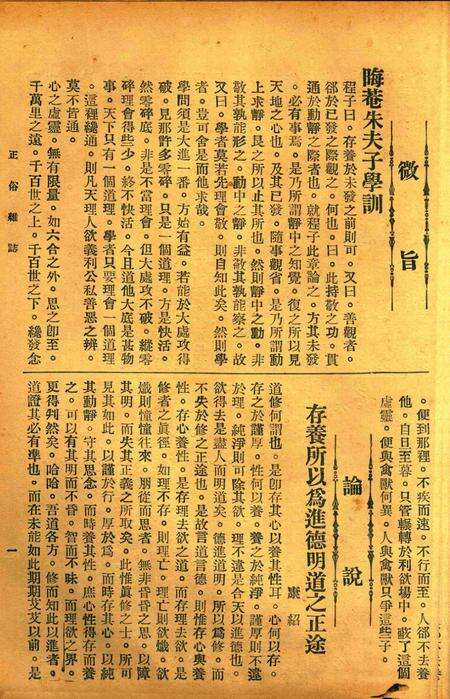 微旨
晦菴朱夫子學訓
程子曰。存養於未發之前則可。又曰。善觀者。
却於已發之際觀之。何也。曰。此持敬之功。貫
通於動靜之際者也。就程子此章論之。方其未發
。必有事焉。是乃所謂靜中之知覺。復之所以見
天地之心也。及其已發。隨事觀省。是乃所謂動
上求靜。艮之所以止其所也。然則靜中之動。非
敬其孰能形之。動中之靜。非敬其孰能察之。故
又曰。學者莫若先理會敬。則自知此矣。然則學
者。豈可舍是而他求哉。
學問須是大進一番。方始有益。若能於大處攻得
破。見那許多零碎。只是一個道理。方是快活。
然零碎底。非是不當理會。但大處攻不破。縱零
碎理會得些少。終不快活。今且道他大底是甚物
事。天下只有一個道理。學者只要理會一個道理
。這裡纔通。則凡天理人欲義利公私善惡之辨。
莫不皆通。
心之虛靈。無有限量。如六合之外。思之卽至。
千萬里之遠。千百世之上。千百世之下。纔發念
。便到那裡。不疾而速。不行而至。人卻不去養
他。自旦至暮。只管輾轉於利欲場中。蔽了這個
虛靈。便與禽獸何異。人與禽獸只爭這些子。
論說
存養所以為進德明道之正途
紹
道修何謂也。是卽存其心以養其性耳。心何以存。
存之於謹厚。性何以養。養之於純淨。謹厚則不違
於理。純淨則可除其欲。理不違是合天以進德也。
欲得去是盡人而明道矣。德進道明。所以為修。而
不失於修之正途也。是故言道言德。則惟存心與養
性。存心養性。是存理去欲之道。而存理去欲。是
修者之眞徑。如理不存。則理亡。理亡則欲熾。欲
熾則憧憧往來。朋從而思者。無非昏昏之思。以障
其明。而失其正義之所取矣。此惟眞修之士。所可
見其如此。以謹於行。厚於為。而時存其心。以純
其動靜。守其思念。而時養其性。庶心性得存而養
之。可以有其明而不昏。智而不昧。而理欲之界。
更得判然矣。哈哈。吾道各方。修而知此以進者。
道證其必有準也。而在未能如此期期艾艾以前。是
正俗雜誌
一